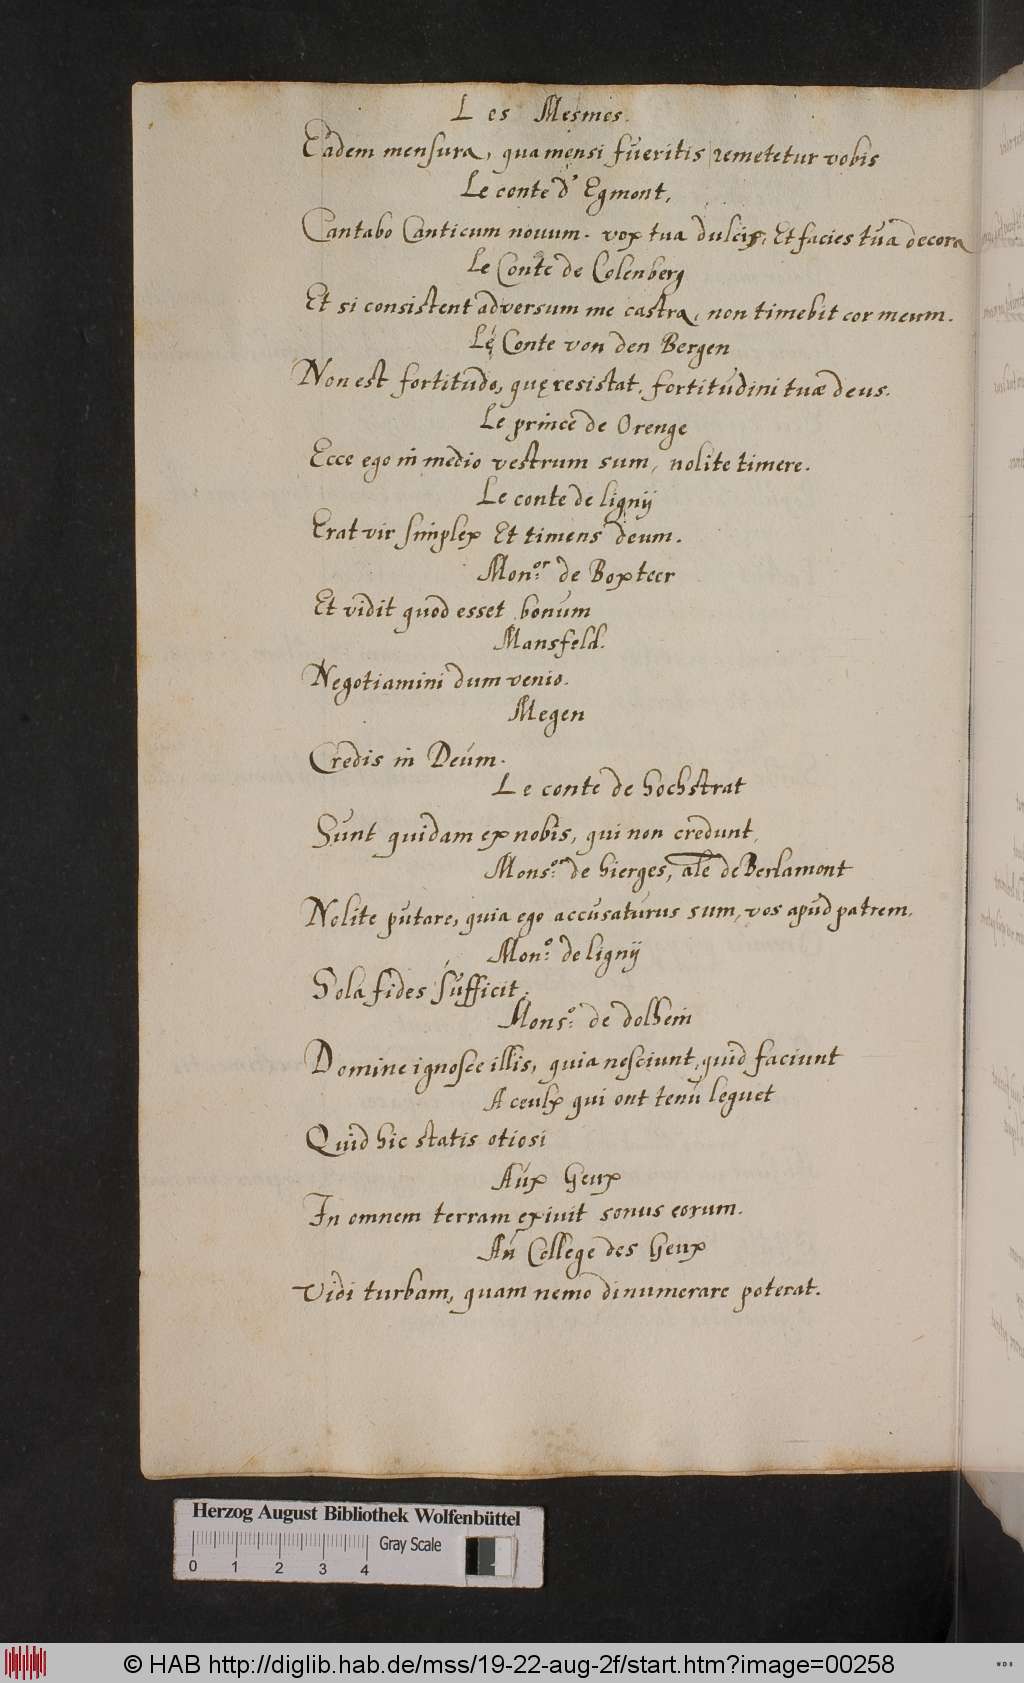 Les Mesmes.
Eadem mensura, qua mensi fueritis remetetur vobis
Le conte d'Egmont,
Cantabo Canticum novum. vox tua dulcis, Et facies tua decora
Le Conte de Colenberg
Et si consistent adversum me castra, non timebit cor meum.
Le Conte von den Bergen
Non est fortitudo, quę resistat, fortitudini tuæ deus.
Le prince de Orenge
Ecce ego in medio vestrum sum, nolite timere.
Le conte de lignij
Erat vir simplex Et timens deum.
Mon:or de Boxteer
Et vidit quod esset bonum
Mansfeld.
Negotiamini dum venio.
Megen
Credis in Deum.
Le conte de hochstrat
Sunt quidam ex nobis, qui non credunt,
Mons:or de hierges, ale de Berlamont
Nolite putare, quia ego accusaturus sum, vos apud patrem.
Mon:o de lignij
Sola fides sufficit.
Mons:o de dolhem
Domine ignosce illis, quia nesciunt, quid faciunt
A ceulx qui ont tenu leguet
Quid hic statis otiosi
Aux Geux
In omnem terram exivit sonus eorum.
Au College des Geux
Vidi turbam, quam nemo dinumerare poterat.
Herzog August Bibliothek Wolfenbüttel
Gray Scale
0 1 2 3 4
© HAB http://diglib.hab.de/mss/19-22-aug-2f/start.htm?image=00258